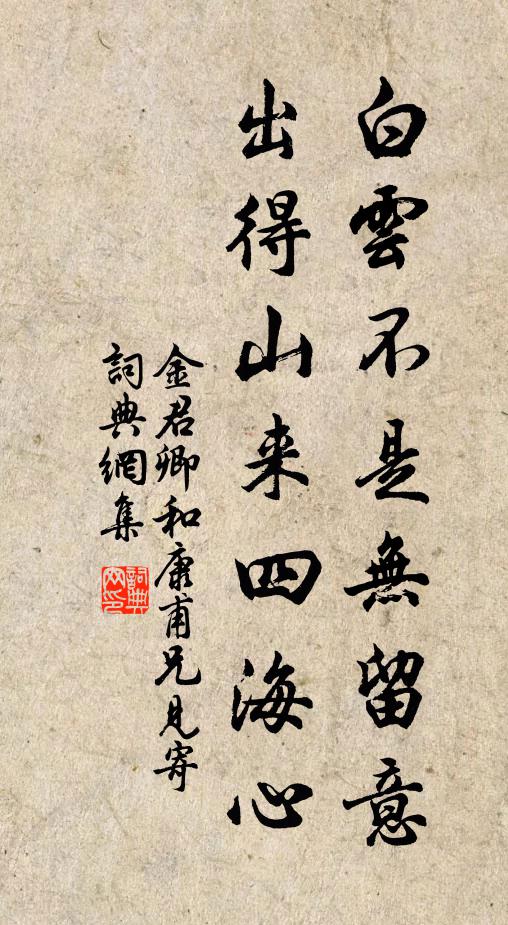 白雲不是無留意
出得山来四海心
金君卿和康甫兄見寄
詞典網集
詞典網印